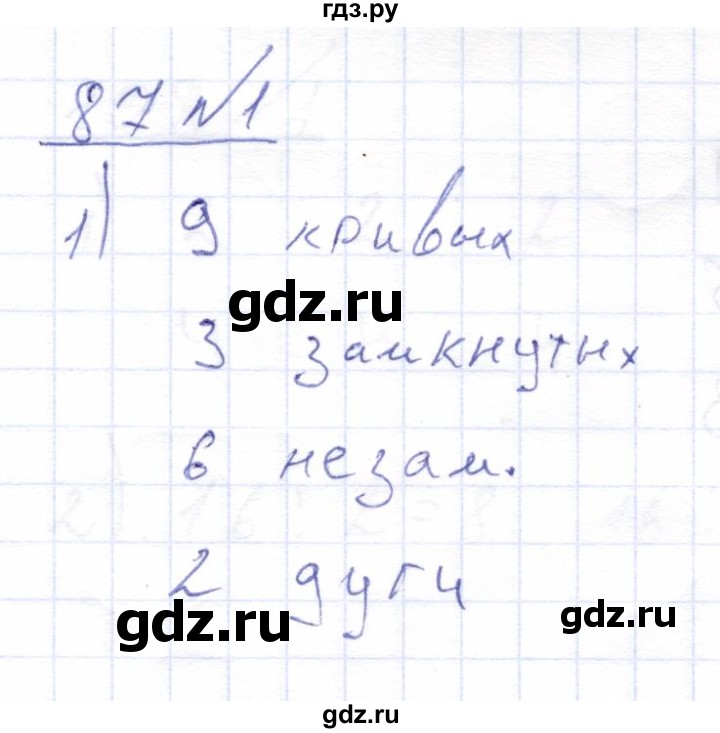 гдз.ру
87 №1
1) 9 кривых
gdz.ru
3 замкнутых
6 незам.
2 дуги
gdz.ru
gdz.ru
gdz.ru